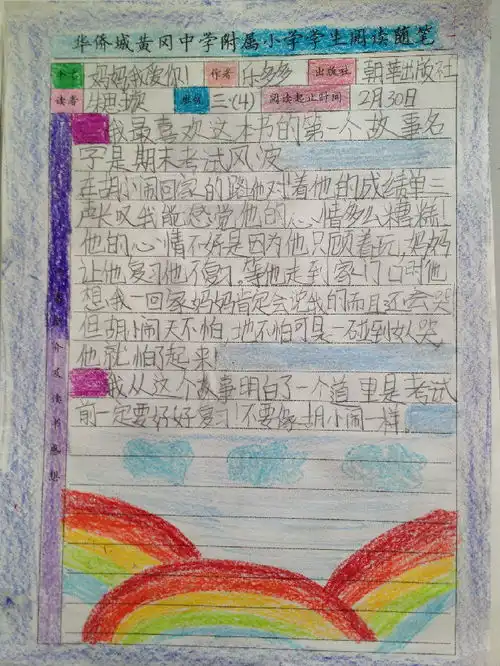 华侨城黄冈中学附属小学学生阅读随笔
书名 妈妈我爱你! 作者 乐多多 出版社 朝华出版社
读者 班级 三(4) 阅读起止时间 2月30日
我最喜欢这本书的第一个故事名
字是期末考试风波
在胡小闹回家的路他对着他的成绩单三
声长叹我能感觉他的心情多么糟糕!
他的心情不好是因为他只顾着玩,妈妈
让他复习他不复习。等他走到家门口时他
想:我一回家妈妈肯定会说我的而且还会哭!
但胡小闹天不怕,地不怕可是一碰到女人哭
他就怕了起来!
我从这个故事明白了一个道里是考试
前一定要好好复习!不要像胡小闹一样。
我的读书感想